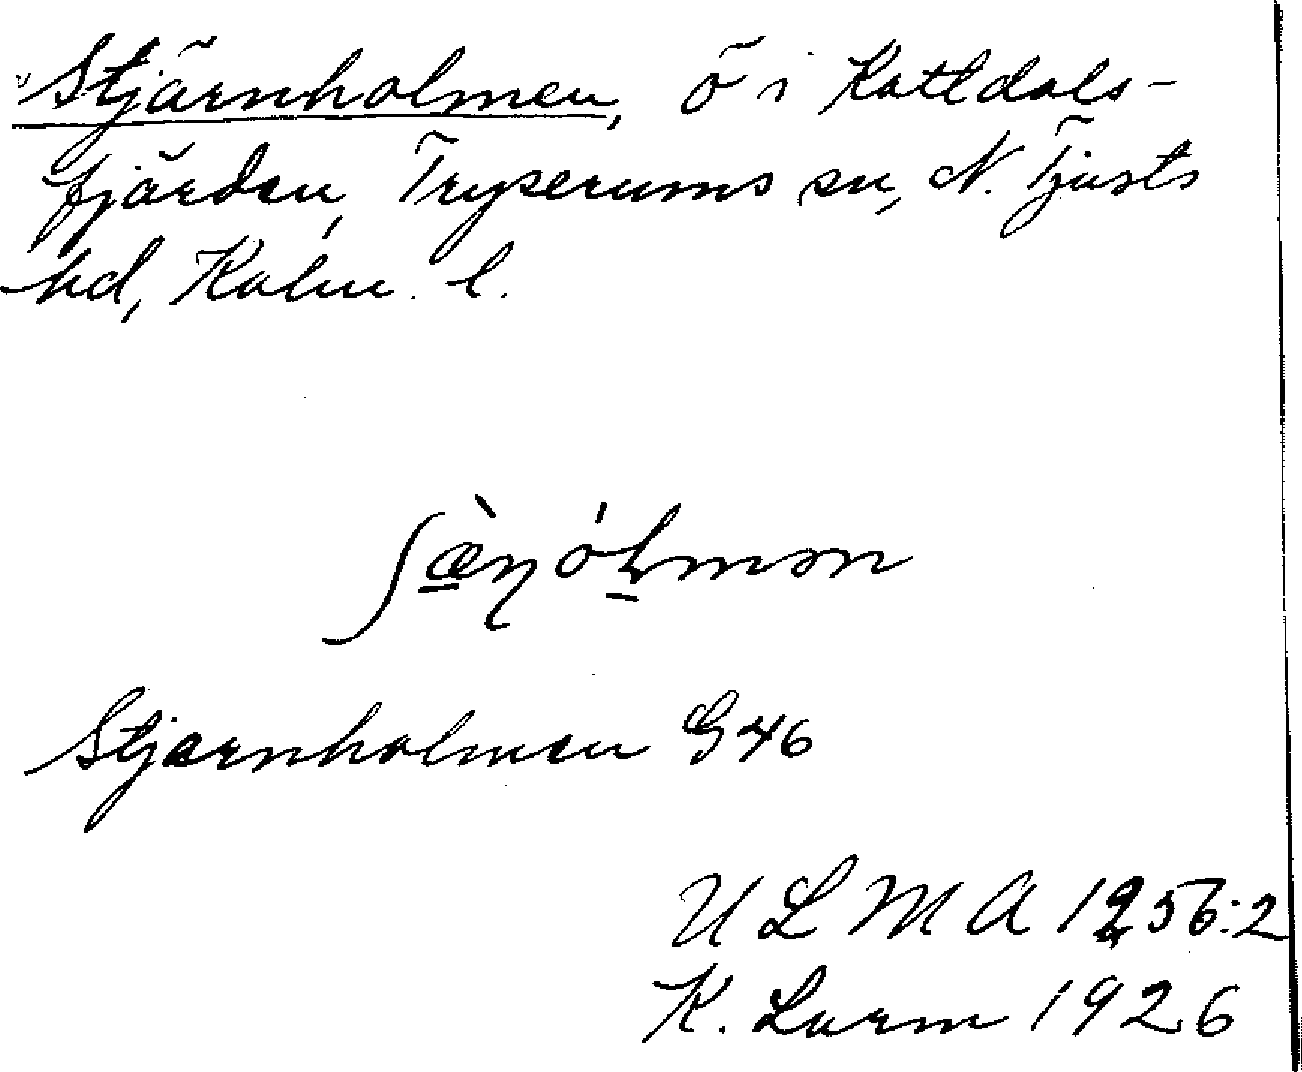 Stjärnholmen, ö i Kattdals-
fjärden, Tryserums sn, N. Tjusts
hd, Kalm. l.
Stjernholmen G 46
U L M A 1256:2
K. Larm 1926